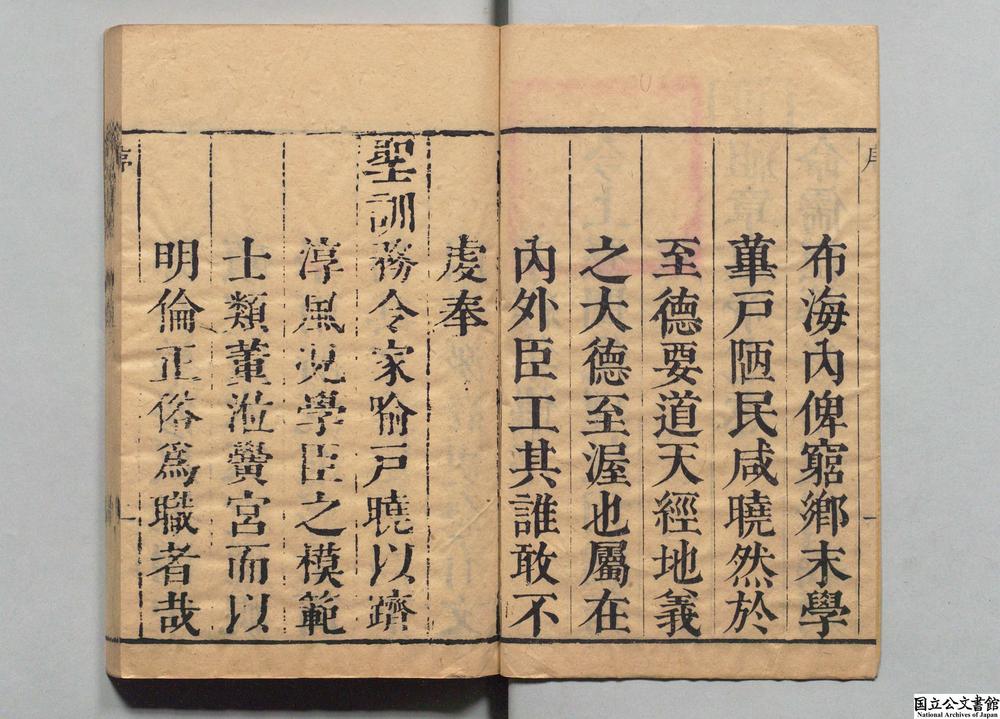 布海內俾窮鄉末學
蓽戸陋民咸曉然於
至德要道天經地義
之大德至渥也屬在
內外臣工其誰敢不
虔奉
聖訓務令家喻戸曉以躋
淳風況學臣之模範
士類董涖黌宮而以
明倫正俗爲職者哉
序
一
国立公文書館
National Archives of Japan